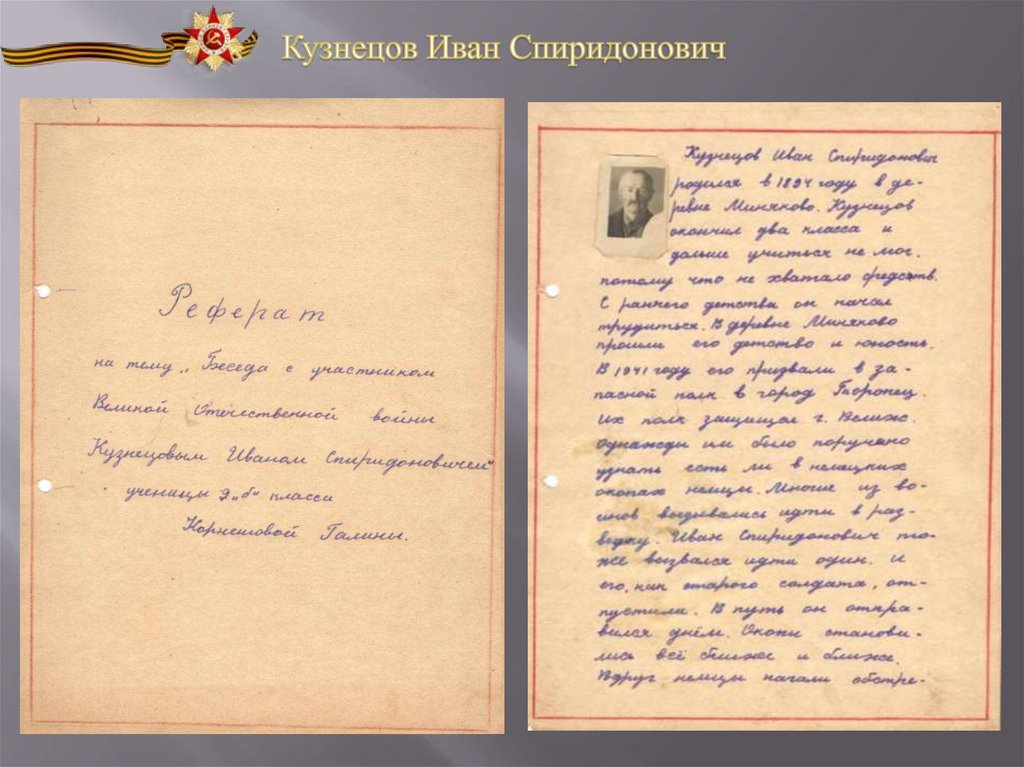 Кузнецов Иван Спиридонович
Реферат
на тему „Беседа с участником
Великой Отечественной войны
Кузнецовым Иваном Спиридоновичем“
ученицы 9 „б“ класса
Корнешовой Галины.
Кузнецов Иван Спиридонович
родился в 1894 году в де-
ревне Миняково. Кузнецов
окончил два класса и
дальше учиться не мог,
потому что не хватало средств.
С раннего детства он начал
трудиться. В деревне Миняково
прошли его детство и юность.
В 1941 году его призвали в за-
пасной полк в город Торопец.
Их полк защищал г. Велиж.
Однажды им было поручено
узнать есть ли в немецких
окопах немцы. Многие из во-
инов вызывались идти в раз-
ведку. Иван Спиридонович то-
же вызвался идти один. и
его, как старого солдата, от-
пустили. В путь он отпра-
вился днём. Окопы станови-
лись всё ближе и ближе.
Вдруг немцы начали обстре-